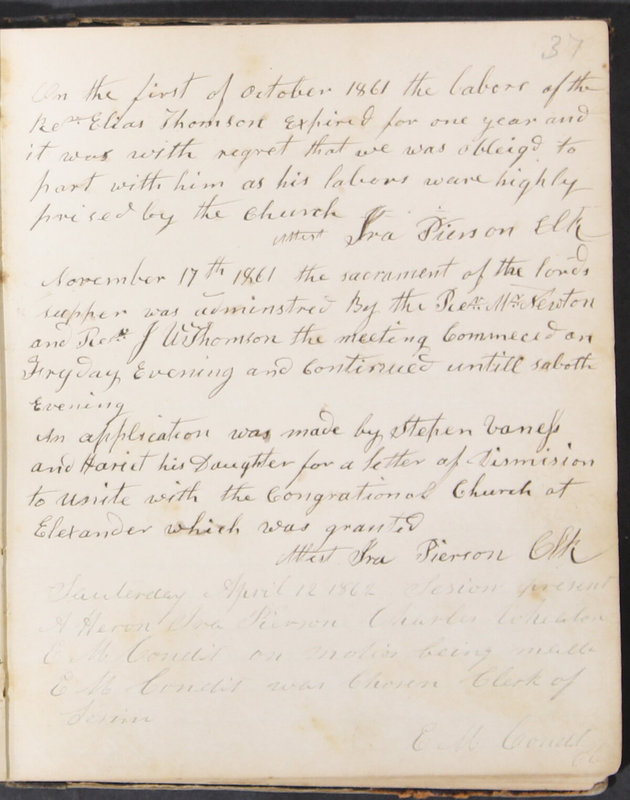 37
On the first of October 1861 the labors of the
Revd Elias Thomson Expired for one year and
it was with regret that we was obleigd to
part with him as his labors ware highly
prised by the church
Attest Ira Pierson Clk
November 17th 1861 the sacrament of the lords
supper was adminstred By the Revd Mr Newton
and Revd J W Thomson the meeting Commeced on
Fryday Evening and Continued untill saboth
Evening
An application was made by Stepen Vaness
and Hariet his Daughter for a letter of Dismision
to unite with the Congrational Church at
Elexander which was granted
Attest Ira Pierson Clk
Sauterday April 12 1862 Sesion present
A Heron Ira Pierson Charles Wheaton
E M Condit on motion being made
E M Condit was Chosen Clerk of
Sesion
E M Condit